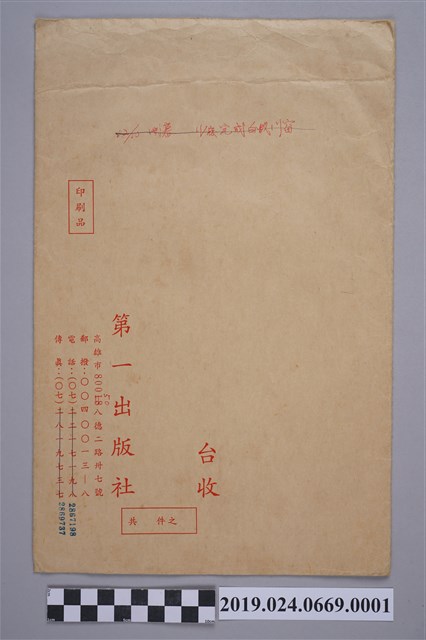 印刷品
台收
第一出版社
高雄市80018八德二路卅七號
50
郵撥：〇〇四〇〇一三—八
電話：(〇七)二一七一九八
2867198
傳真：(〇七)二八一九七三七
2869737
共 件之
2019.024.0669.0001